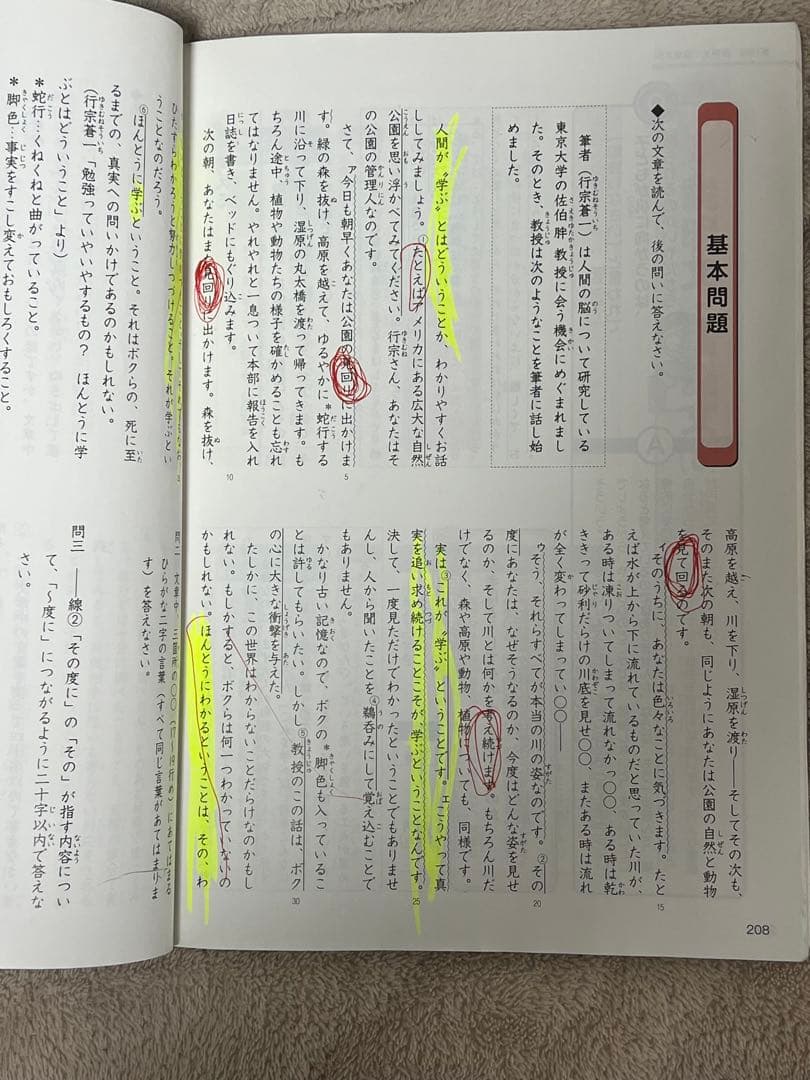 基本問題
◆次の文章を読んで、後の問いに答えなさい。
筆者(行宗蒼一)は人間の脳について研究している
東京大学の佐伯胖教授に会う機会にめぐまれまし
た。そのとき、教授は次のようなことを筆者に話し始
めました。
人間が〝学ぶ〟とはどういうことか、わかりやすくお話
ししてみましょう。①たとえばアメリカにある広大な自然
公園を思い浮かべてみてください。行宗さん、あなたはそ
の公園の管理人なのです。
さて、ア今日も朝早くあなたは公園の見回りに出かけま
す。緑の森を抜け、高原を越えて、ゆるやかに*蛇行する
川に沿って下り、湿原の丸太橋を渡って帰ってきます。も
ちろん途中、植物や動物たちの様子を確かめることも忘れ
てはなりません。やれやれと一息ついて本部に報告を入れ
日誌を書き、ベッドにもぐり込みます。
次の朝、あなたはまた見回りに出かけます。森を抜け、
高原を越え、川を下り、湿原を渡り――そしてその次も、
そのまた次の朝も、同じようにあなたは公園の自然と動物
を見て回るのです。
イそのうちに、あなたは色々なことに気づきます。たと
えば水が上から下に流れているものだと思っていた川が、
ある時は凍りついてしまって流れなかっ〇〇、ある時は乾
ききって砂利だらけの川底を見せ〇〇、またある時は流れ
が全く変わってしまってい〇〇――
ウそう、それらすべてが本当の川の姿なのです。②その
度にあなたは、なぜそうなるのか、今度はどんな姿を見せ
るのか、そして川とは何かを考え続けます。もちろん川だ
けでなく、森や高原や動物、植物についても、同様です。
実は③これが〝学ぶ〟ということです。エこうやって真
実を追い求め続けることこそが、学ぶということなんです。
決して、一度見ただけでわかったということでもありませ
んし、人から聞いたことを④鵜呑みにして覚え込むことで
もありません。
かなり古い記憶なので、ボクの*脚色も入っているこ
とは許してもらいたい。しかし⑤教授のこの話は、ボク
の心に大きな衝撃を与えた。
たしかに、この世界はわからないことだらけなのかもし
れない。もしかすると、ボクらは何一つわかっていないの
かもしれない。ほんとうにわかるということは、その、わ
ひたすらわかろうと努力しつづけること。それが学ぶとい
うことなのだろう。
⑥ほんとうに学ぶということ。それはボクらの、死に至
るまでの、真実への問いかけであるのかもしれない。
(行宗蒼一「勉強っていやいやするもの? ほんとうに学
ぶとはどういうこと」より)
*蛇行…くねくねと曲がっていること。
*脚色…事実をすこし変えておもしろくすること。
問二 文章中、三箇所の〇〇(17〜19行め)にあてはまる
ひらがな二字の言葉(すべて同じ言葉があてはまりま
す)を答えなさい。
問三 ――線②「その度に」の「その」が指す内容につい
て、「〜度に」につながるように二十字以内で答えな
さい。
5
10
15
20
25
30
208